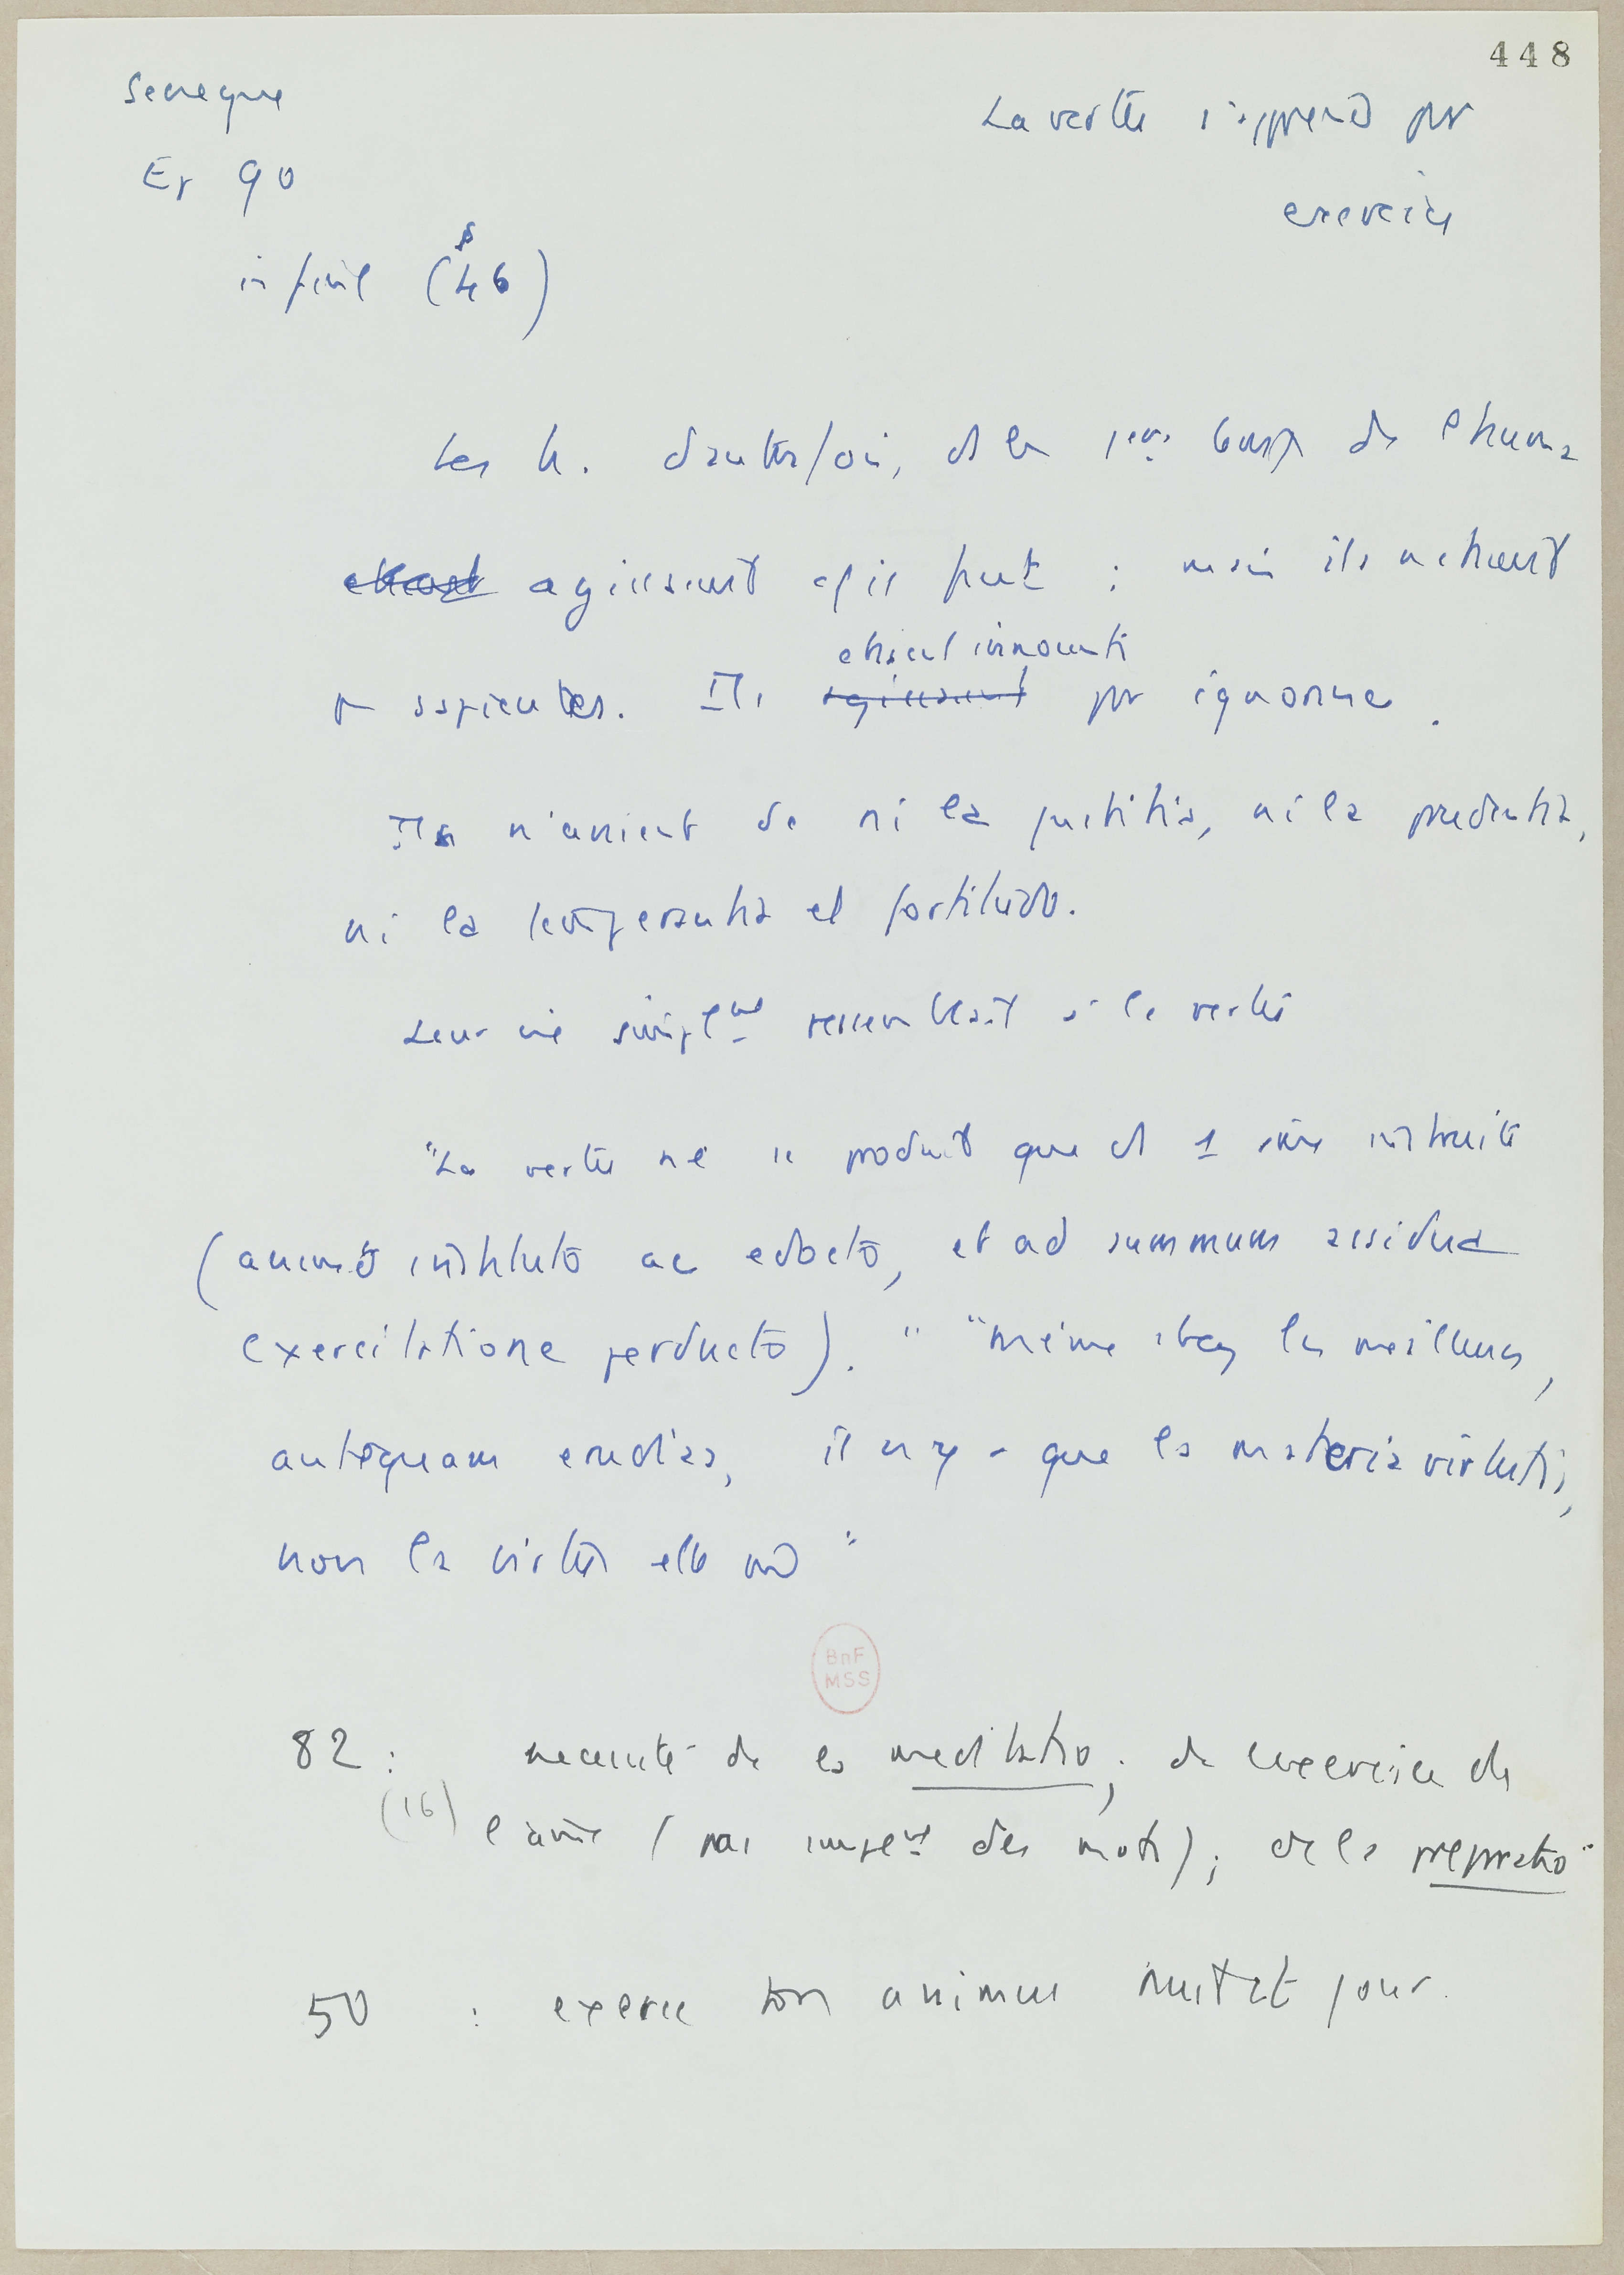 448
Seneque
La vertu s'apprend par
Ep 90
exercice
in fine (§ 46)
Les h. d'autrefois, ds les 1ers temps de l'huma
étaient agissaient
; mais ils n'étaient
pas sapientes. Ils étaient innocents agissaient par ignorance.
Ils n'avaient de ni la justitia, ni la prudentia,
ni la temperantia et fortitudo.
Leur vie simplemt ressemblait à la vertu
"La vertu ne se produit que ds 1 âme instruite
(animo instituto ac edocto, et ad summum assidua
exercitatione perducto)." "même chez les meilleurs,
antequam erudias, il n'y a que la materia virtutis,
non la virtus elle m̂
BnF
MSS
82 : necessité de la meditatio ; de l'exercice de
(16) l'âme (pas simplemt des mots) ; de la preparatio
50 : exerce ton animus nuit et jour.